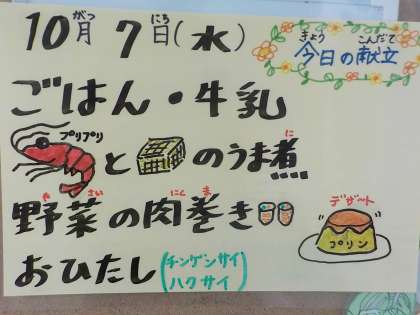 10月 7日(水)
がつ にち
きょう こんだて
今日の献立
ごはん・牛乳
プリプリ
と のうま煮
に
野菜の肉巻き
や さい にく ま
デザート
プリン
おひたし(チンゲンサイ
ハクサイ)